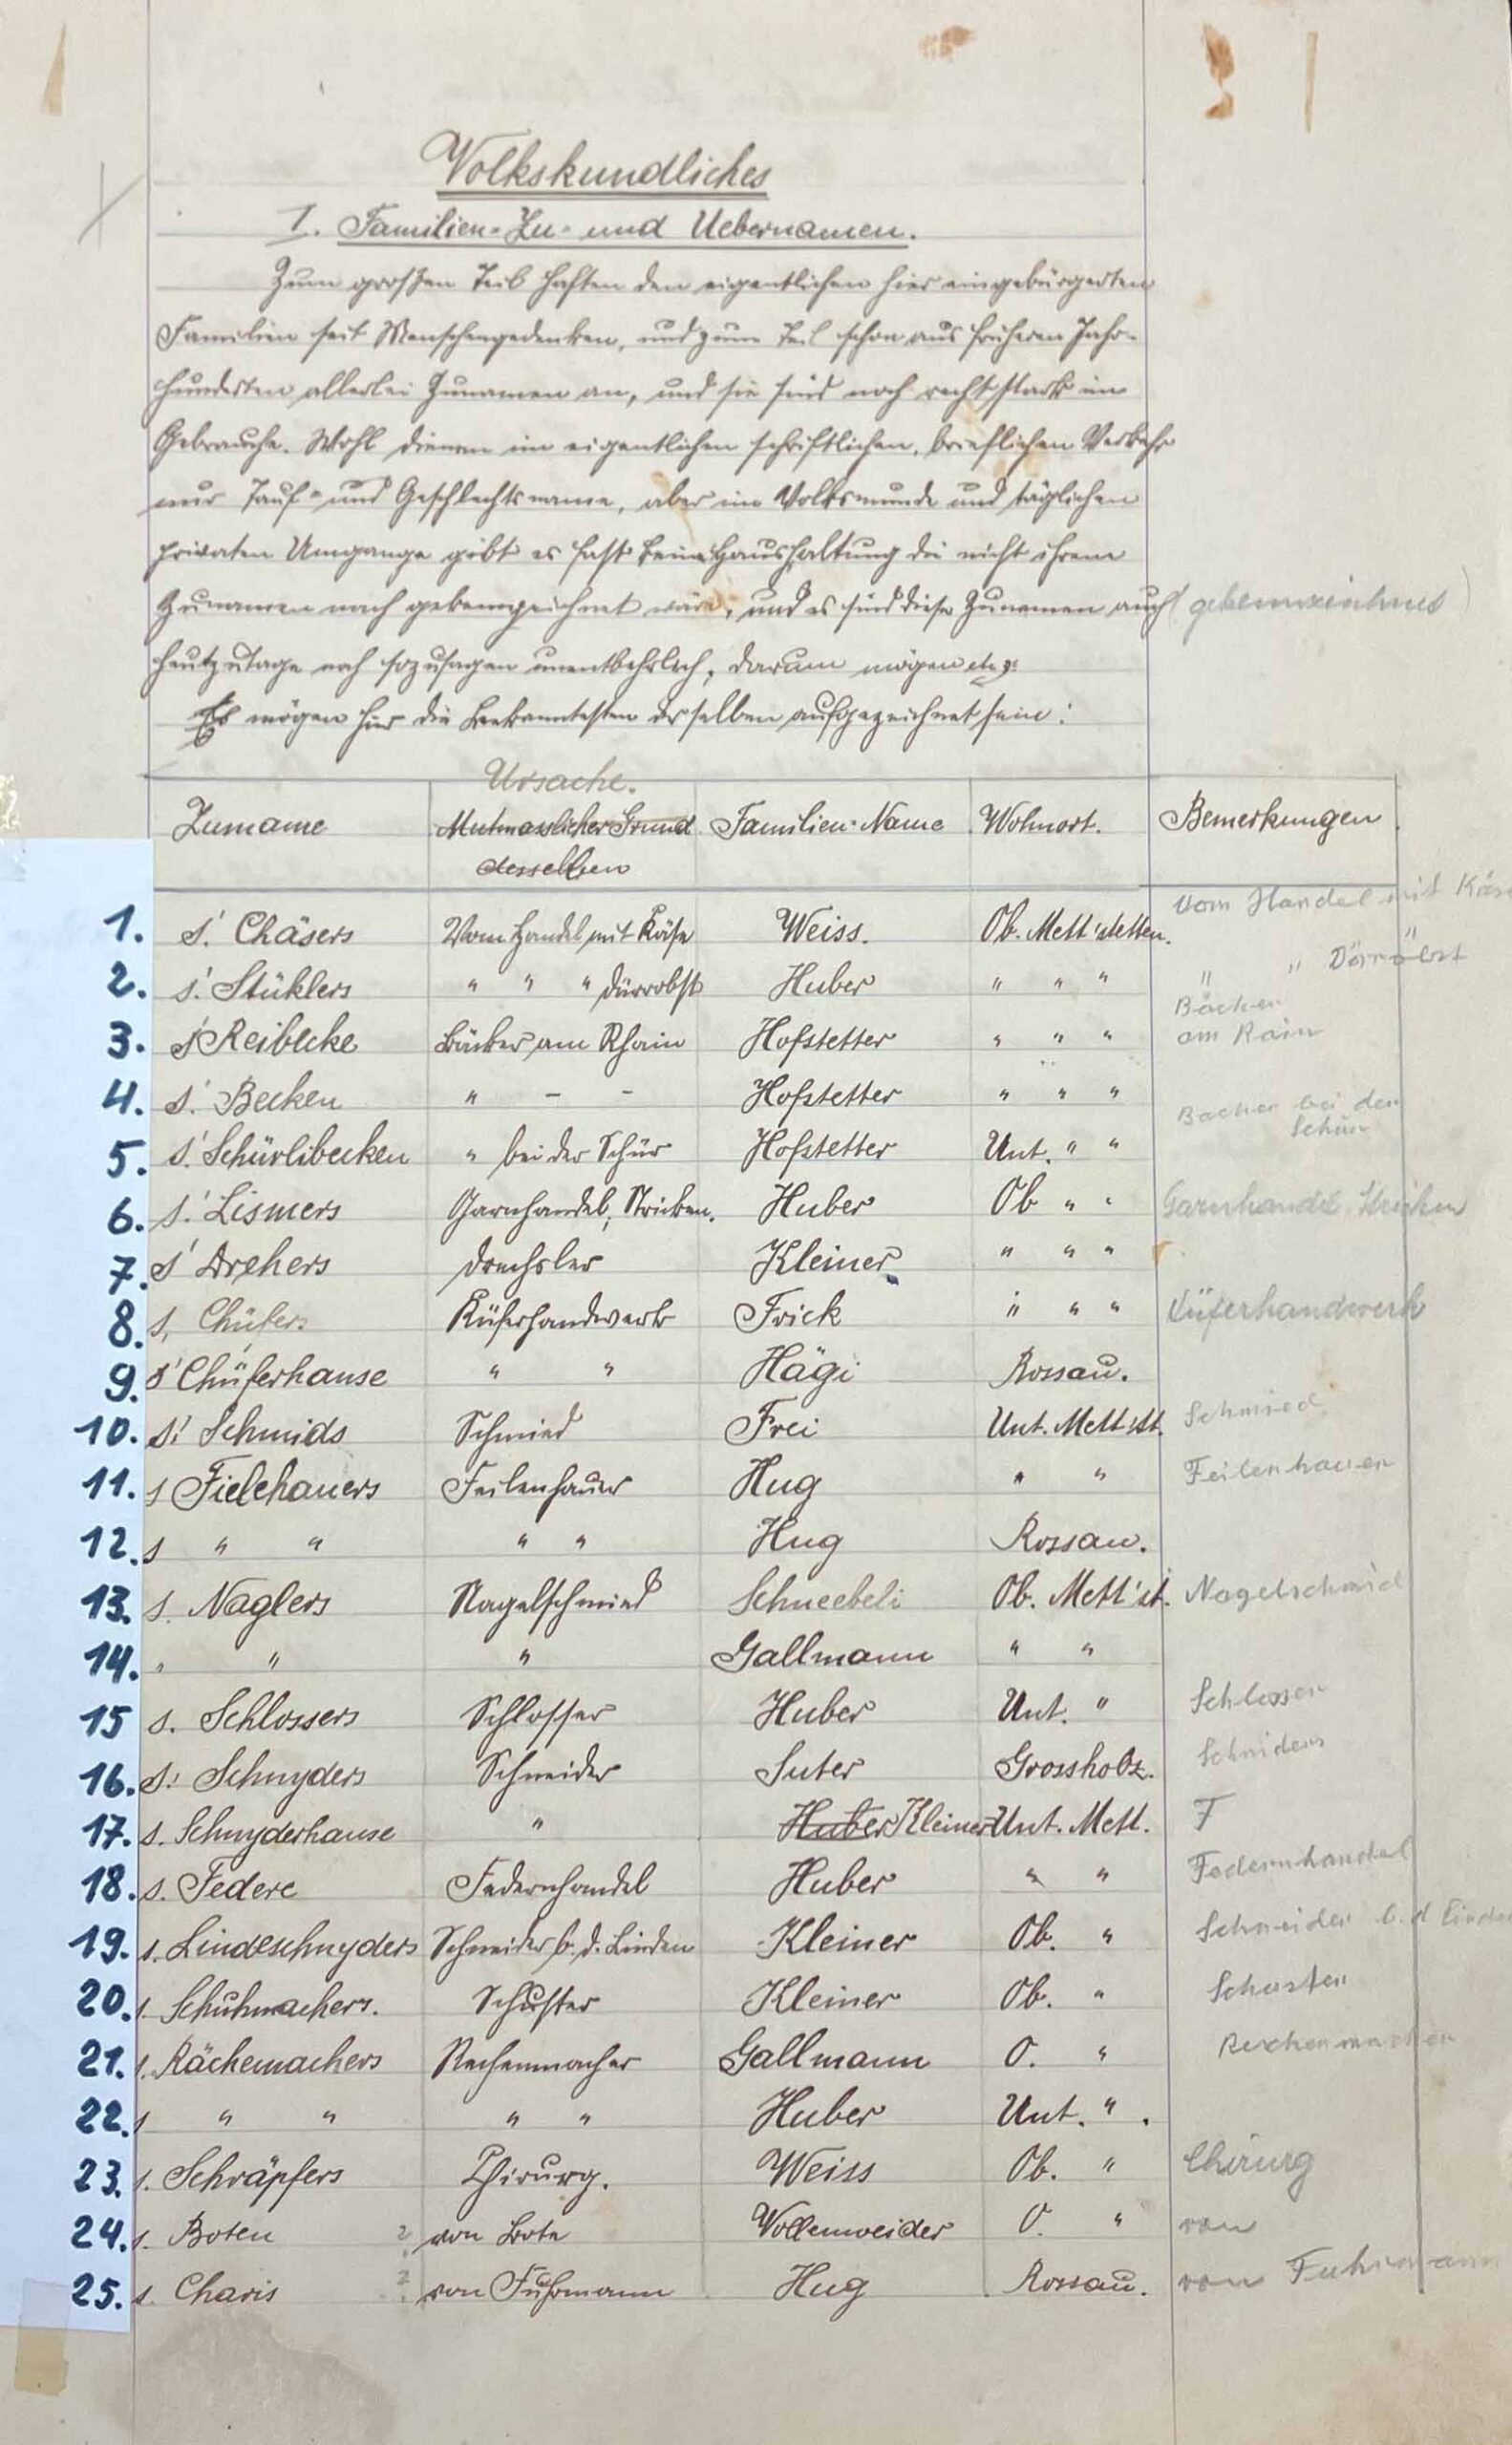 Volkskundliches
I. Familien-Zu- und Uebernamen.
Zum großen Teil haften den eigentlichen hier eingebürgerten
Familien seit Menschengedenken, und zum Teil schon aus früheren Jahr-
hunderten allerlei Zunamen an, und sie sind noch recht stark im
Gebrauche. Wohl dienen im eigentlichen schriftlichen, brieflichen Verkehr
nur Tauf- und Geschlechtsname, aber im Volksmunde und täglichen
privaten Umgange gibt es fast keine Haushaltung die nicht ihrem
Zunamen nach gekennzeichnet wäre, und es sind diese Zunamen auch (gekennzeichnet)
heutzutage noch sozusagen unentbehrlich, darum mögen
Es mögen hier die Bekanntesten derselben aufgezeichnet sein:
Ursache.
Zuname Mutmasslicher Grund Familien-Name Wohnort. Bemerkungen
desselben
1. s'. Chäsers Vom Handel mit Käse Weiss. Ob. Mett'stetten. Vom Handel mit Käse
2. s'. Stüklers " " " Dürrobst Huber " " " " " Dörrobst
3. s' Reibecke Bäcker am Rhain Hofstetter " " " Bäcker am Rain
4. s'. Becken " - - Hofstetter " " "
5. s'. Schürlibecken " bei der Schür Hofstetter Unt. " " Bäcker bei der Schür
6. s'. Lismers Garnhandel, Stricken. Huber Ob " " Garnhandel, Stricken
7. s' Drehers Drechsler Kleiner " " "
8. s, Chüfers Küferhandwerk Frick " " " Küferhandwerk
9. s' Chüferhause " " Hägi Rossau.
10. s' Schmids Schmied Frei Unt. Mett'st. Schmied
11. s Fielehauers Feilenhauer Hug " " Feilenhauer
12. s " " " " Hug Rossau.
13. s. Naglers Nagelschmied Schneebeli Ob. Mett'st. Nagelschmid
14. " " " Gallmann " "
15 s. Schlossers Schlosser Huber Unt. " Schlosser
16. s: Schnyders Schneider Suter Grossholz. Schniders
17. s. Schnyderhause " Huber Kleiner Unt. Mett. F
18. s. Federe Federnhandel Huber " " Federnhandel
19. s. Lindeschnyders Schneider b. d. Linden Kleiner Ob. " Schneider b. d Linden
20. s. Schuhmachers. Schuster Kleiner Ob. " Schuster
21. s. Rächemachers Rechenmacher Gallmann O. " Rechenmacher
22. s " " " " Huber Unt. " .
23. s. Schräpfers Chirurg. Weiss Ob. " Chirurg
24. s. Boten ? von Bote Vollenweider O. " von
25. s. Charis ? von Fuhrmann Hug Rossau. von Fuhrmann